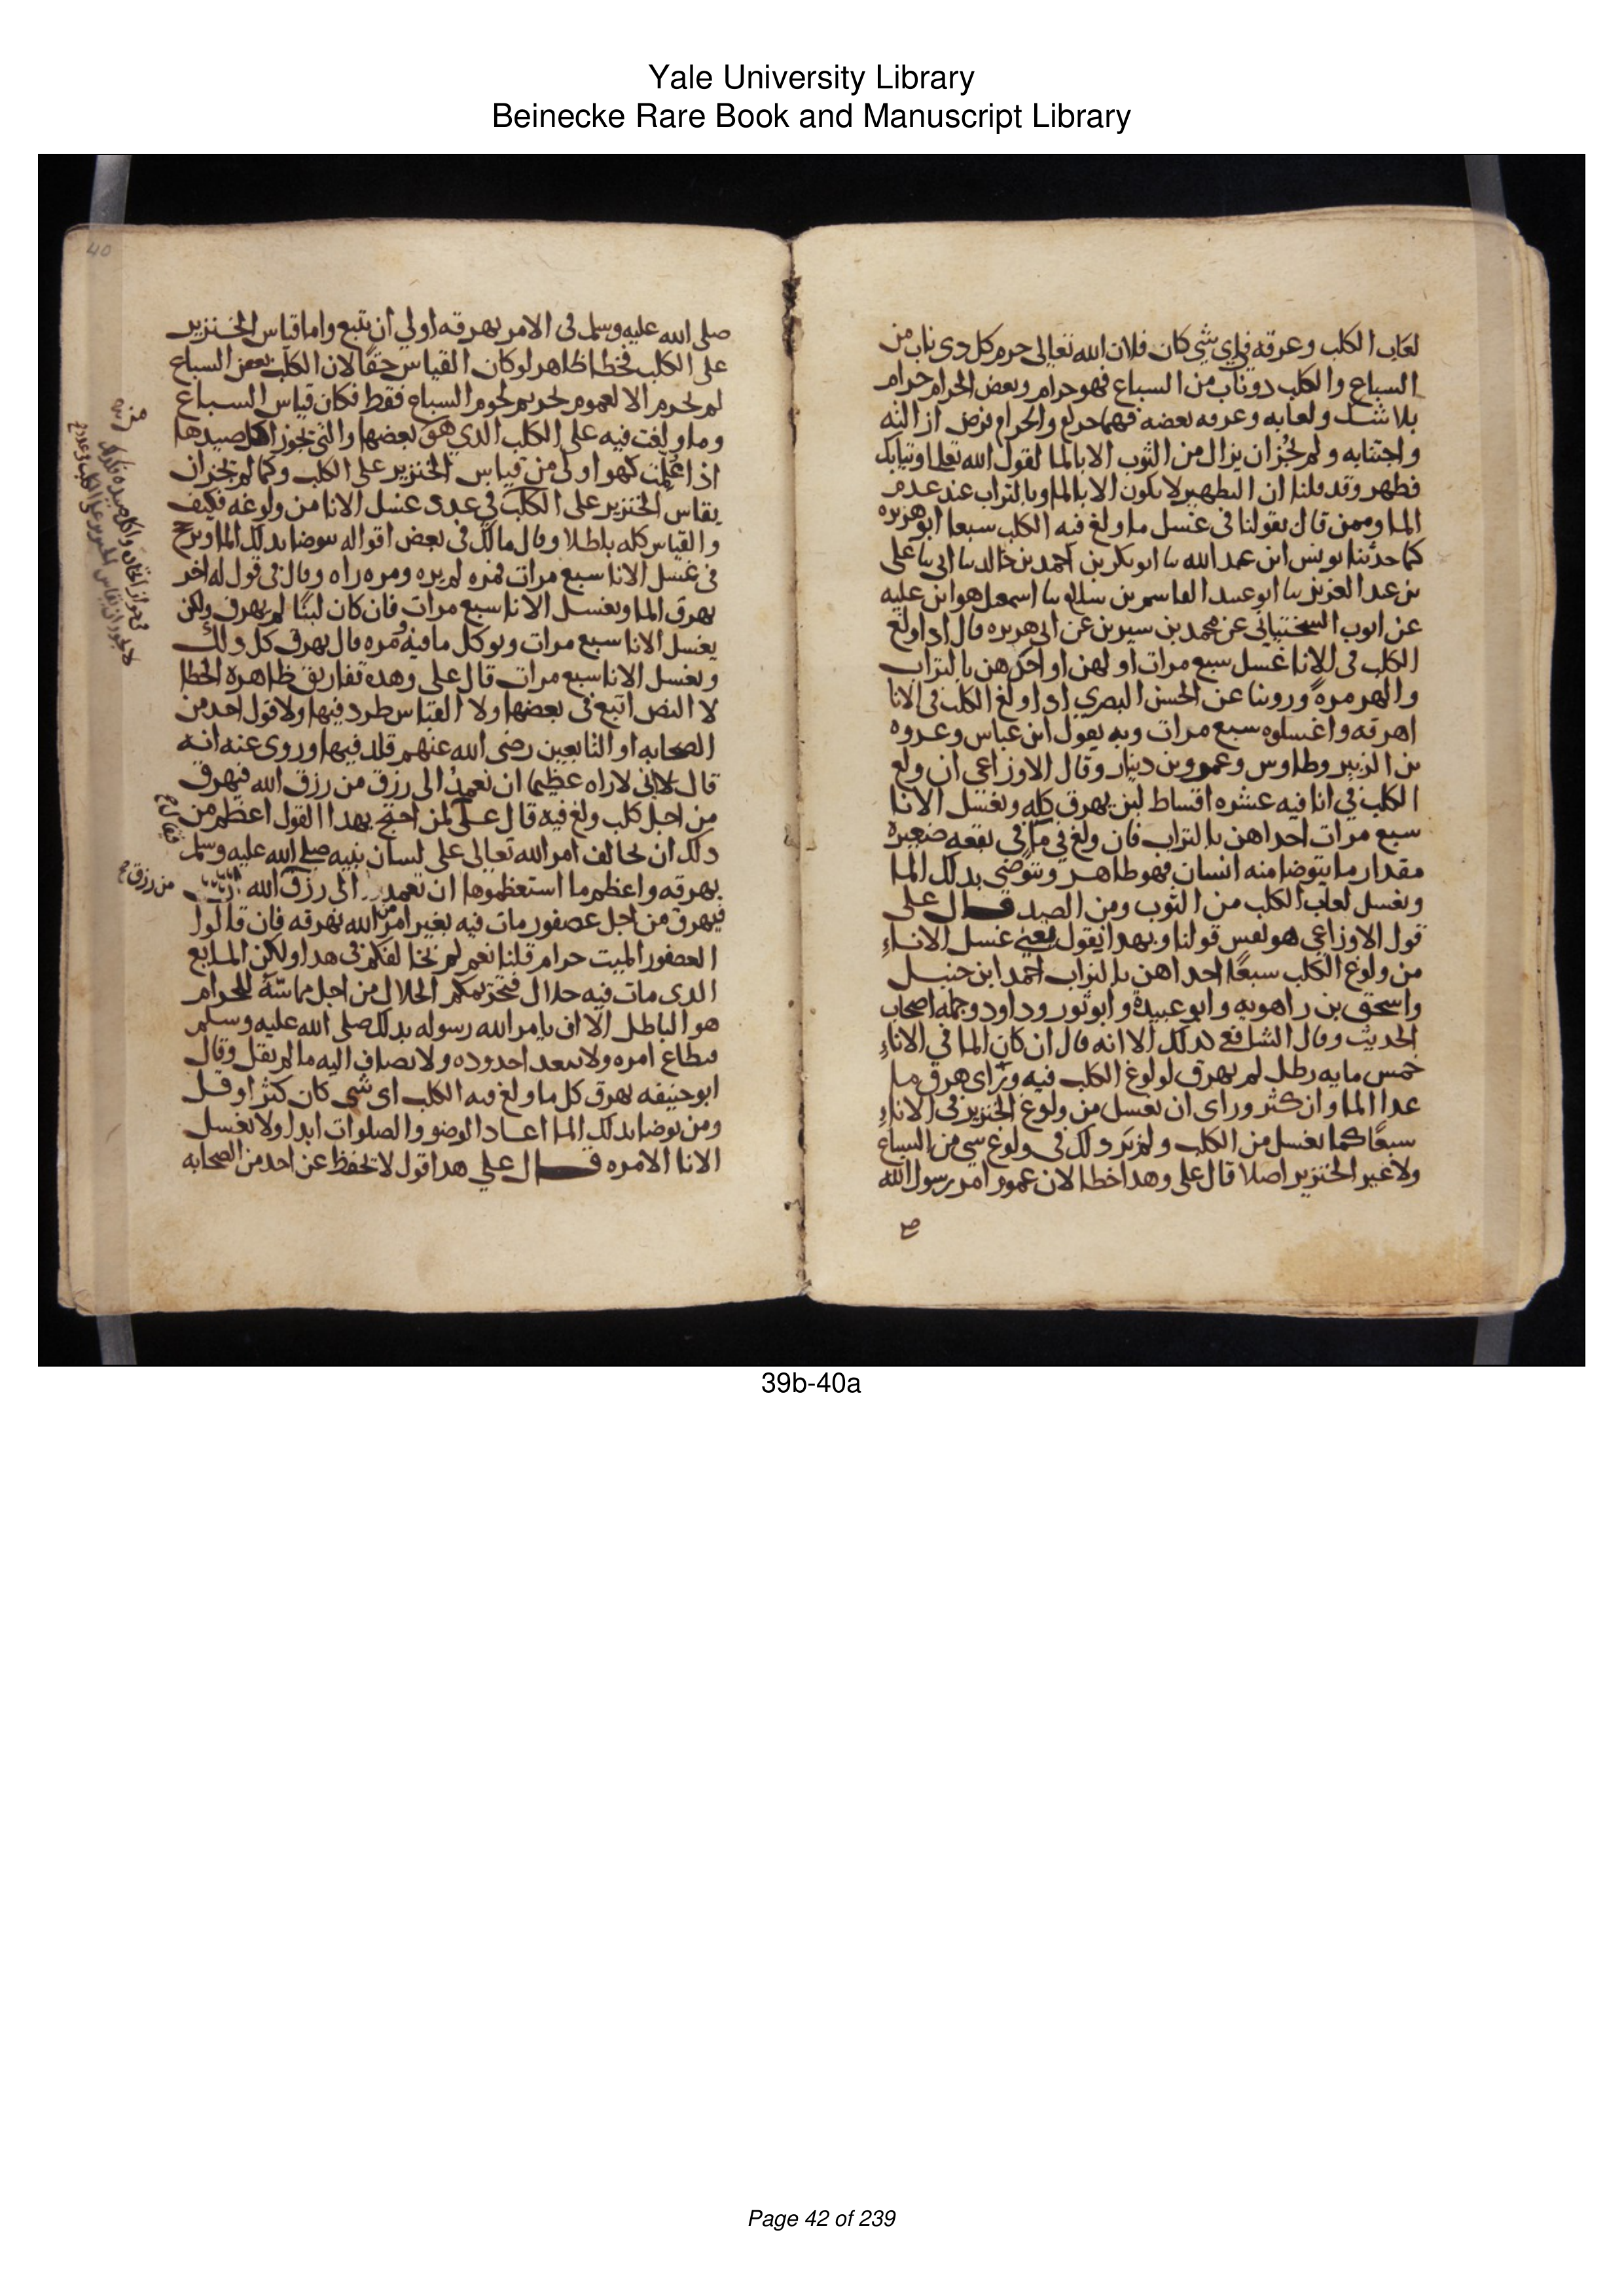 Yale University Library
Beinecke Rare Book and Manuscript Library
لعاب الكلب وعرقه في اي شي كان فلان الله تعالى حرم كل دى ناب من
السباع والكلب دوناب من السباع فهو حرام وبعض الحرام حرام
بلا شك ولعابه وعرقه بعضه فهما حرام والحرام فرض ازالته
واجتنابه ولم يجز ان يزال من الثوب الا بالما لقول الله تعالى وثيابك
فطهر وقد قلنا ان التطهير لا يكون الا بالما وبالتراب عند عدم
الما وممن قال بقولنا فى غسل ما ولغ فيه الكلب سبعا ابو هريره
كما حدثنا يونس ابن عبد الله نا ابو بكر بن احمد بن خالد نا ابى نا على
بن عبد العزيز نا ابو عبيد القاسم بن سلام نا اسمعيل هو ابن عليه
عن ايوب السختياني عن محمد بن سيرين عن ابى هريره قال اذا ولغ
الكلب فى الانا غسل سبع مرات اولهن او احداهن بالتراب
والهر مرة وروينا عن الحسن البصري اذا ولغ الكلب فى الانا
اهرقه واغسلوه سبع مرات وبه يقول ابن عباس وعروه
بن الزبير وطاوس وعمرو بن دينار وقال الاوزاعي ان ولغ
الكلب في انا فيه عشره اقساط لبن يهرق كله ويغسل الانا
سبع مرات احداهن بالتراب فان ولغ في ما في بقعه صغيرة
مقدار ما يتوضا منه انسان فهو طاهر ويتوضى بدلك الما
ويغسل لعاب الكلب من الثوب ومن الصيد قال على
قول الاوزاعي هو نفس قولنا وبهدا يقول يعني غسل الاناء
من ولوغ الكلب سبعًا احداهن بالتراب احمد ابن حنبل
واسحق بن راهويه وابو عبيدة وابو ثور وداود وجمله اصحاب
الحديث وقال الشافعي كدلك الا انه قال ان كان الما في الاناء
خمس مايه رطل لم يهرق لولوغ الكلب فيه وراى هرق ما
عدا الما وان كثر وراى ان يغسل من ولوغ الخنزير فى الاناء
سبعًا كما يغسل من الكلب ولم ير دلك في ولوغ شي من السباع
ولا غير الخنزير اصلا قال على وهدا خطا لان عموم امر رسول الله
40
صلى الله عليه وسلم فى الامر بهرقه اولي ان يتبع واما قياس الخنزير
على الكلب فخطا ظاهر لو كان القياس حقًا لان الكلب بعض السباع
لم يحرم الا لعموم تحريم لحوم السباع فقط فكان قياس السباع
وما ولغت فيه على الكلب الدي هو بعضها والتى يجوز اكل صيدها
اذا علمت كهو اولى من قياس الخنزير على الكلب وكما لم يجز ان
يقاس الخنزير على الكلب في عدد غسل الانا من ولوغه فكيف
والقياس كله باطل وقال مالك فى بعض اقواله يتوضا بدلك الما
فى غسل الانا سبع مرات فمره لم يره ومره راه وقال فى قول له اخر
يهرق الما ويغسل الانا سبع مرات فان كان لبنًا لم يهرق ولكن
يغسل الانا سبع مرات ويوكل ما فيه ومره قال يهرق كل دلك
ويغسل الانا سبع مرات قال علي وهده تفاريق ظاهرة الخطا
لا النص اتبع فى بعضها ولا القياس طرد فيها ولا قول احد من
الصحابه او التابعين رضى الله عنهم قلد فيها وروى عنه انه
قال انى لاراه عظيمًا ان نعمد الى رزق من رزق الله فيهرق
من اجل كلب ولغ فيه قال على لمن احتج بهدا القول اعظم من
دلك ان تخالف امر الله تعالى على لسان نبيه صلى الله عليه وسلم
بهرقه واعظم ما استعظموها ان نعمد الى رزق الله
فيهرق من اجل عصفور مات فيه بغير امر من الله بهرقه فان قالوا
العصفور الميت حرام قلنا نعم لم نخالفكم فى هدا ولكن المايع
الدى مات فيه حلال فتحريمكم الحلال من اجل مماسّه للحرام
هو الباطل الا ان يامر الله رسوله بدلك صلى الله عليه وسلم
فيطاع امره ولا تتعدا حدوده ولا يضاف اليه ما لم يقل وقال
ابو حنيفه يهرق كل ما ولغ فيه الكلب اى شى كان كثر او قل
ومن توضا بدلك الما اعاد الوضو والصلوات ابدا ولا يغسل
الانا الا مره قال علي هدا قول لا يحفظ عن احد من الصحابه
من رزق
39b-40a
Page 42 of 239